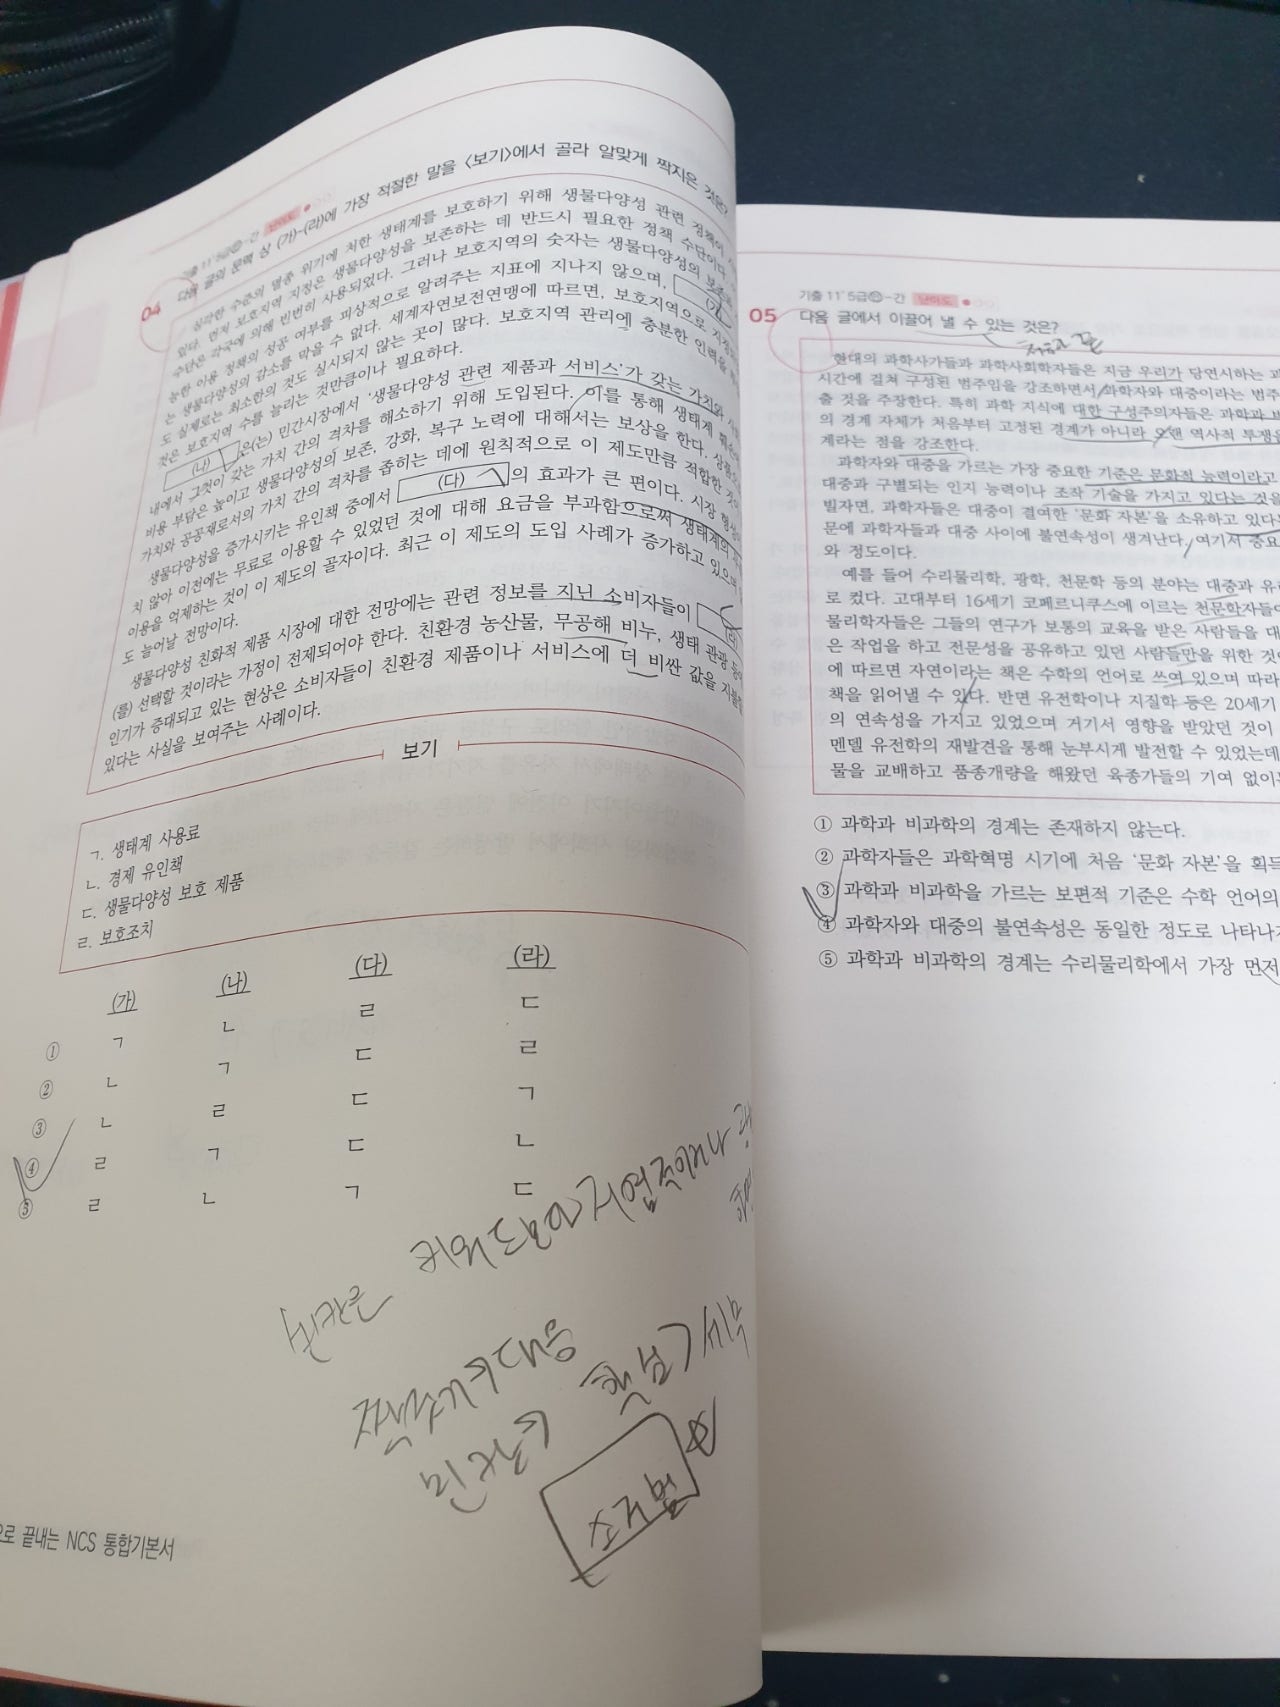 기출 11' 5급㉑-간 난이도
04
다음 글의 문맥 상 (가)~(라)에 가장 적절한 말을 <보기>에서 골라 알맞게 짝지은 것은?
심각한 수준의 멸종 위기에 처한 생태계를 보호하기 위해 생물다양성 관련 정책이
있다. 먼저 보호지역 지정은 생물다양성을 보존하는 데 반드시 필요한 정책 수단이다.
수단은 각국에 의해 빈번히 사용되었다. 그러나 보호지역의 숫자는 생물다양성의 보존과
능한 이용 정책의 성공 여부를 피상적으로 알려주는 지표에 지나지 않으며, (가)
는 생물다양성의 감소를 막을 수 없다. 세계자연보전연맹에 따르면, 보호지역으로 지정된
도 실제로는 최소한의 것도 실시되지 않는 곳이 많다. 보호지역 관리에 충분한 인력을
것은 보호지역 수를 늘리는 것만큼이나 필요하다.
(나) 은(는) 민간시장에서 '생물다양성 관련 제품과 서비스'가 갖는 가치와
내에서 그것이 갖는 가치 간의 격차를 해소하기 위해 도입된다. 이를 통해 생태계 훼손
비용 부담은 높이고 생물다양성의 보존, 강화, 복구 노력에 대해서는 보상을 한다. 상품
가치와 공공재로서의 가치 간의 격차를 좁히는 데에 원칙적으로 이 제도만큼 적합한 것이
생물다양성을 증가시키는 유인책 중에서 (다) 의 효과가 큰 편이다. 시장 형성
치 않아 이전에는 무료로 이용할 수 있었던 것에 대해 요금을 부과함으로써 생태계의
이용을 억제하는 것이 이 제도의 골자이다. 최근 이 제도의 도입 사례가 증가하고 있으며
도 늘어날 전망이다.
생물다양성 친화적 제품 시장에 대한 전망에는 관련 정보를 지닌 소비자들이 (라)
(를) 선택할 것이라는 가정이 전제되어야 한다. 친환경 농산물, 무공해 비누, 생태 관광 등
인기가 증대되고 있는 현상은 소비자들이 친환경 제품이나 서비스에 더 비싼 값을 지불할
있다는 사실을 보여주는 사례이다.
보기
ㄱ. 생태계 사용료
ㄴ. 경제 유인책
ㄷ. 생물다양성 보호 제품
ㄹ. 보호조치
(가) (나) (다) (라)
① ㄱ ㄴ ㄹ ㄷ
② ㄴ ㄱ ㄷ ㄹ
③ ㄴ ㄹ ㄷ ㄱ
④ ㄹ ㄱ ㄷ ㄴ
⑤ ㄹ ㄴ ㄱ ㄷ
빈칸은
소거법
으로 끝내는 NCS 통합기본서
기출 11' 5급-간 난이도
05
다음 글에서 이끌어 낼 수 있는 것은?
현대의 과학사가들과 과학사회학자들은 지금 우리가 당연시하는
시간에 걸쳐 구성된 범주임을 강조하면서 과학자와 대중이라는 범주
출 것을 주장한다. 특히 과학 지식에 대한 구성주의자들은 과학과
의 경계 자체가 처음부터 고정된 경계가 아니라 오랜 역사적 투쟁을
계라는 점을 강조한다.
과학자와 대중을 가르는 가장 중요한 기준은 문화적 능력이라고
대중과 구별되는 인지 능력이나 조작 기술을 가지고 있다는 것을
빌자면, 과학자들은 대중이 결여한 '문화 자본'을 소유하고 있다는
문에 과학자들과 대중 사이에 불연속성이 생겨난다. 여기서 중요
와 정도이다.
예를 들어 수리물리학, 광학, 천문학 등의 분야는 대중과 유리
로 컸다. 고대부터 16세기 코페르니쿠스에 이르는 천문학자들이
물리학자들은 그들의 연구가 보통의 교육을 받은 사람들을 대
은 작업을 하고 전문성을 공유하고 있던 사람들만을 위한 것
에 따르면 자연이라는 책은 수학의 언어로 쓰여 있으며 따라
책을 읽어낼 수 있다. 반면 유전학이나 지질학 등은 20세기
의 연속성을 가지고 있었으며 거기서 영향을 받았던 것이
멘델 유전학의 재발견을 통해 눈부시게 발전할 수 있었는데
물을 교배하고 품종개량을 해왔던 육종가들의 기여 없이는
① 과학과 비과학의 경계는 존재하지 않는다.
② 과학자들은 과학혁명 시기에 처음 '문화 자본'을 획득
③ 과학과 비과학을 가르는 보편적 기준은 수학 언어의
④ 과학자와 대중의 불연속성은 동일한 정도로 나타나지
⑤ 과학과 비과학의 경계는 수리물리학에서 가장 먼저